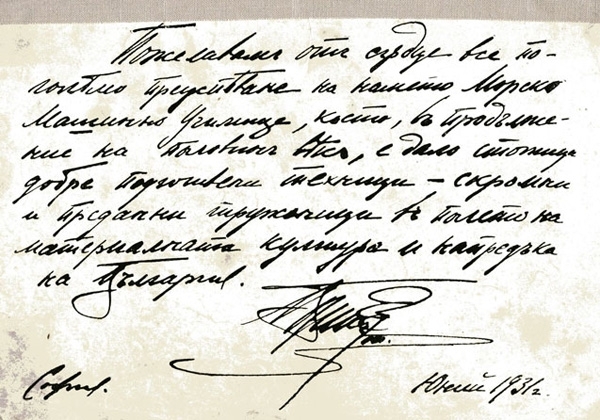 Пожелавамъ отъ сърдце все по-
голѣмо преуспѣване на нашето Морско
Машинно Училище, което, въ продълже-
ние на половинъ вѣкъ, е дало стотици
добре подготвени техници – скромни
и предани труженици въ полето на
материалната култура и напредъка
на България.
София.
Юний 1931 г.